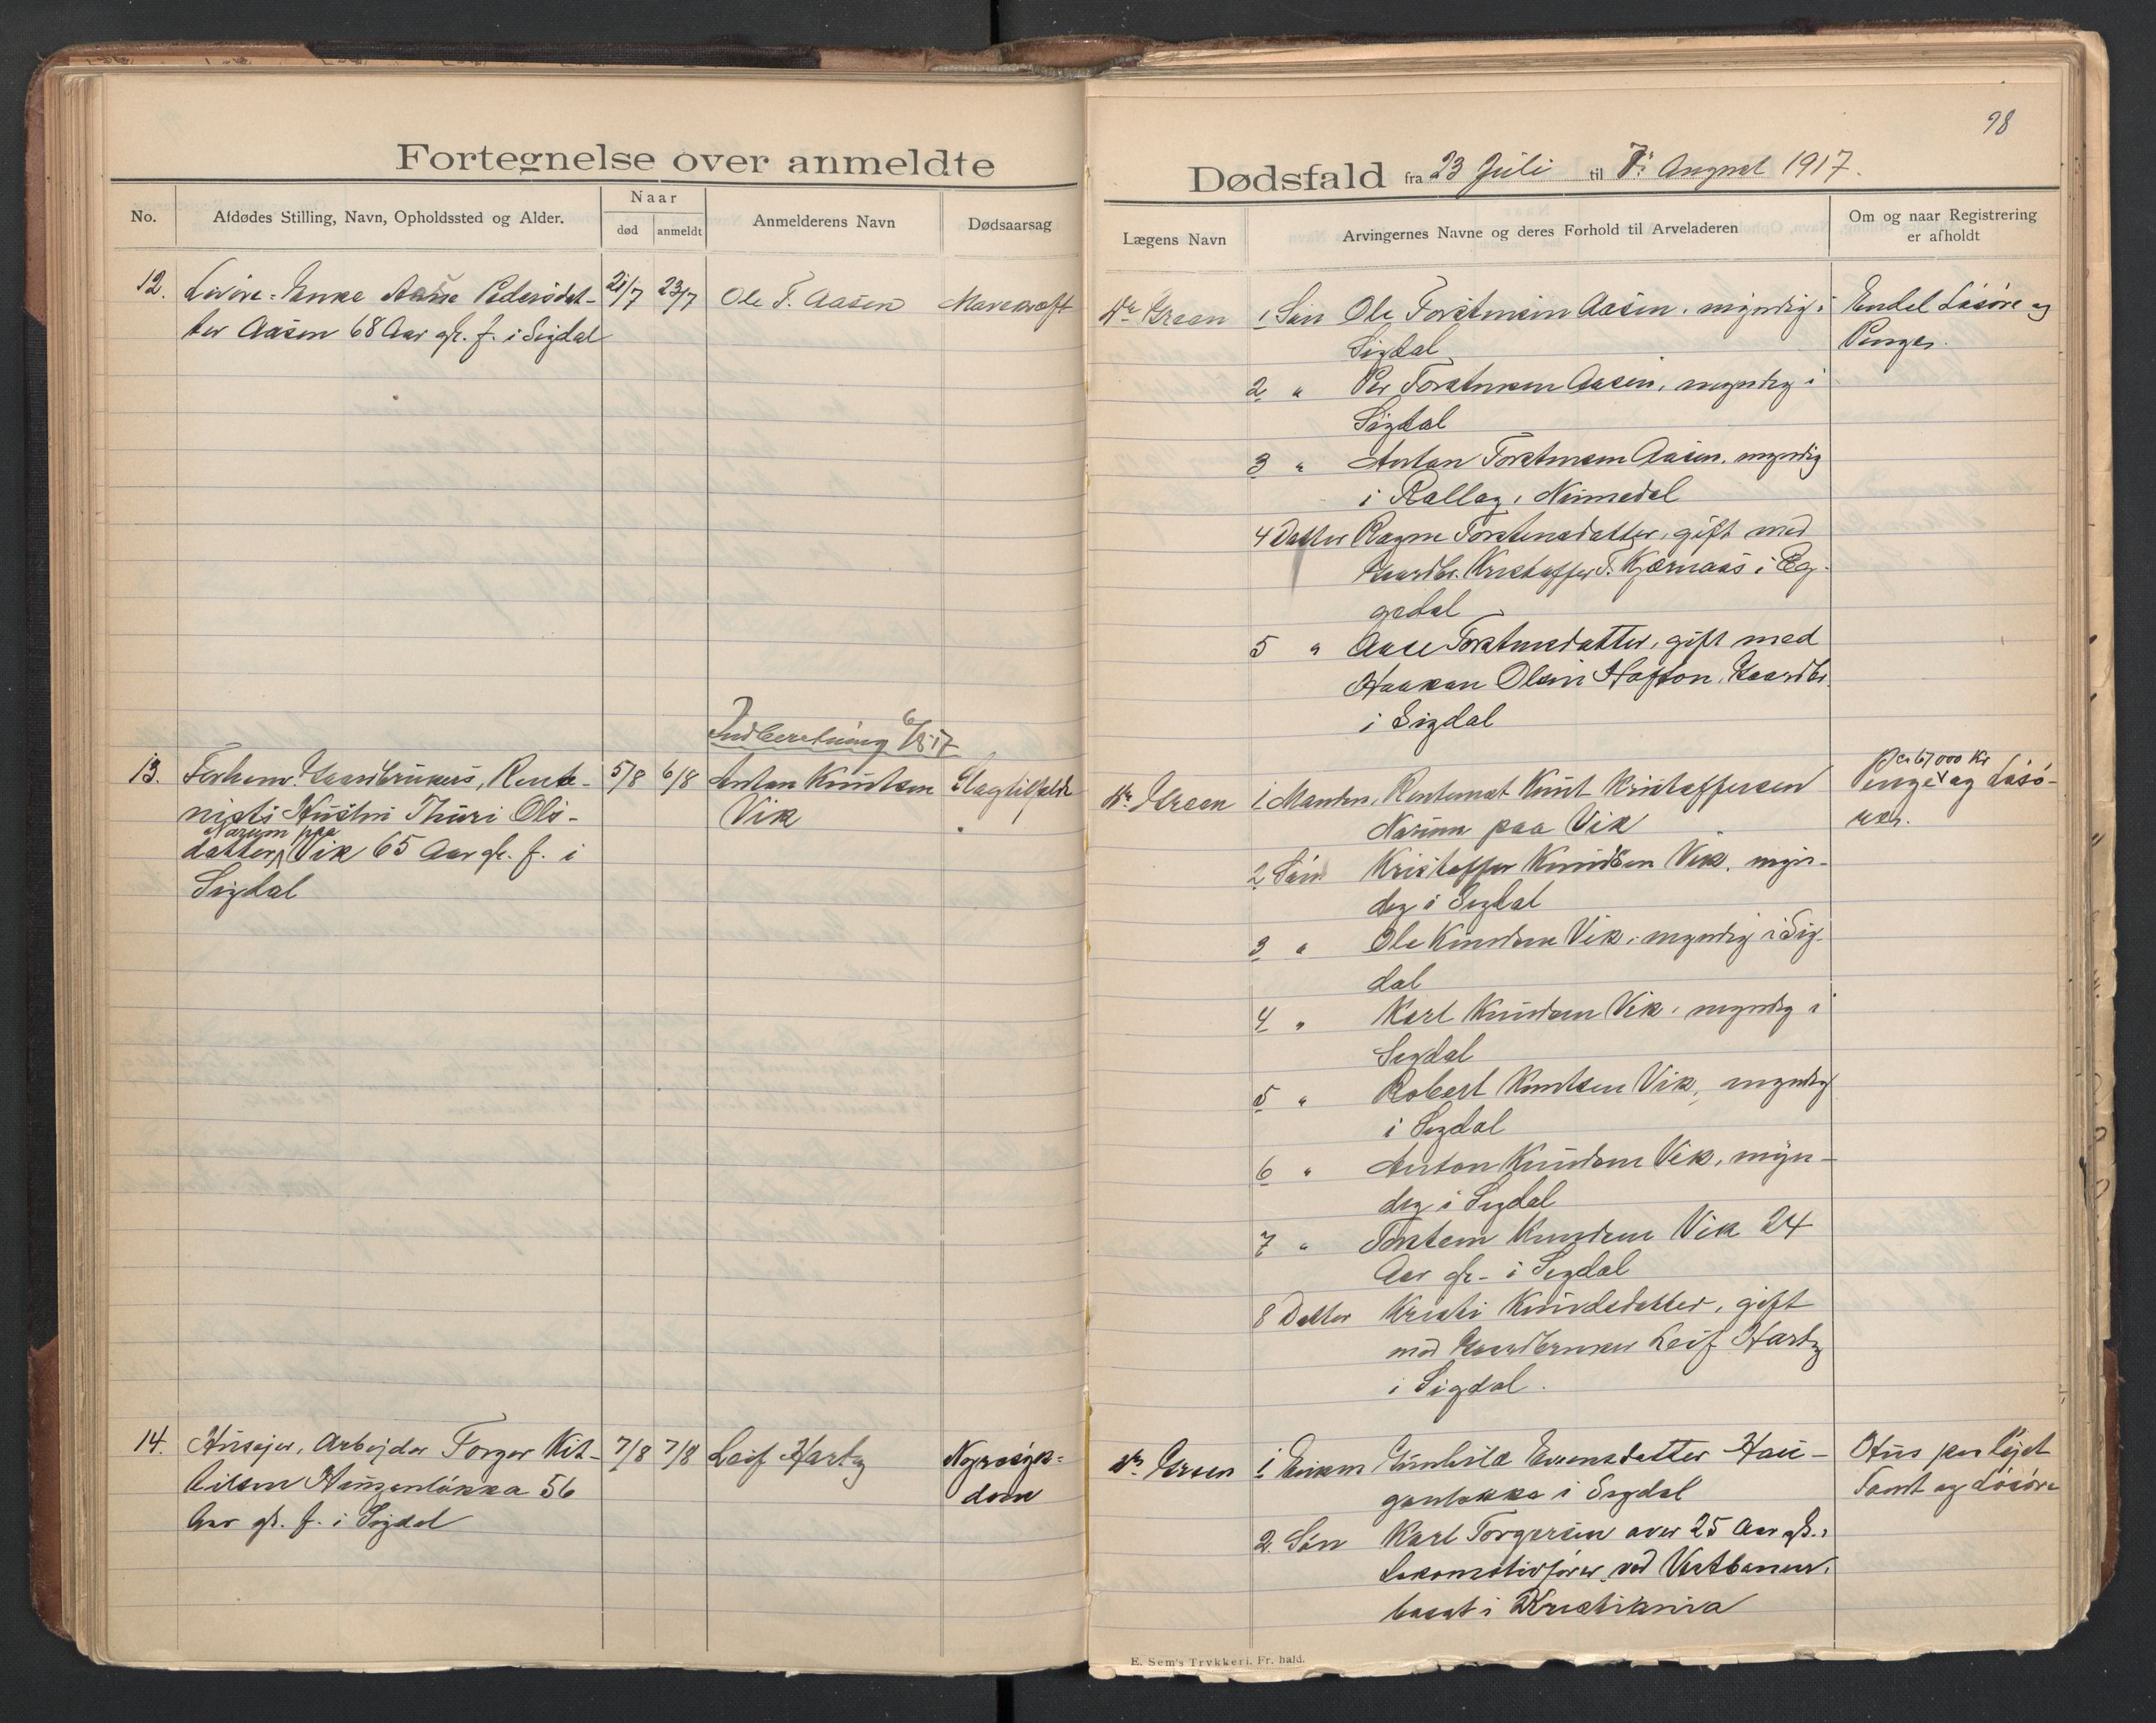 98
Fortegnelse over anmeldte
Dødsfald fra 23 Juli til 7: August 1917.
No.
Afdødes Stilling, Navn, Opholdssted og Alder.
Naar
død
anmeldt
Anmelderens Navn
Dødsaarsag
Lægens Navn
Arvingernes Navne og deres Forhold til Arveladeren
Om og naar Registrering
er afholdt
12.
Enke Aase Pedersdat-
ter Aasen 68 Aar gl. f. i Sigdal
21/7
23/7
Ole T. Aasen
Mavekræft
Dr Green
1 Søn Ole Torstensen Aasen, myndig i
Sigdal
2 " Per Torstensen Aasen, myndig i
Sigdal
3 " Anton Torstensen Aasen, myndig
i Rollag, Numedal
4 Datter Ragne Torstensdatter, gift med
Gaardbr. Kristoffer T. Kjærnaas i Eg-
gedal
5 " Aase Torstensdatter, gift med
Haakon Olsen Hafton, Gaardbr.
i Sigdal
Endel Løsøre og
Penger.
Indberetning 6/8 17
13.
Forhenv. Gaardbrukers, Rente-
nists Hustru Thuri Ols-
Narum paa
datter, Vik 65 Aar gl. f. i
Sigdal
5/8
6/8
Anton Knutsen
Vik
Slagtilfælde
Dr. Green
1. Manden, Rentenist Knut Kristoffersen
Narum paa Vik
2 Søn Kristoffer Knudsen Vik, myn-
dig i Sigdal
3 " Ole Knudsen Vik, myndig i Sig-
dal
4 " Karl Knudsen Vik, myndig i
Sigdal
5 " Robert Knutsen Vik, myndig
i Sigdal
6 " Anton Knudsen Vik, myn-
dig i Sigdal
7 " Torsten Knudsen Vik 24
Aar gl. i Sigdal
8 Datter Kristi Knudsdatter, gift
med Gaardbruker Leif Hartz
i Sigdal.
67000 Kr
Penge og Løsø-
rer.
14.
Huseier, Arbejder Torger Kit-
tilsen Haugenløkka 56
Aar gl. f. i Sigdal
7/8
7/8
Leif Hartz
Nyresyk-
dom
Dr. Green
1 Enken Gunhild Evensdatter Hau-
genløkka i Sigdal
2. Søn Karl Torgersen over 25 Aar gl.,
Lokomotivfører ved Vestbanen,
bosat i Kristiania
Hus paa lejet
Tomt og Løsøre
E. Sem's Trykkeri, Fr. hald.